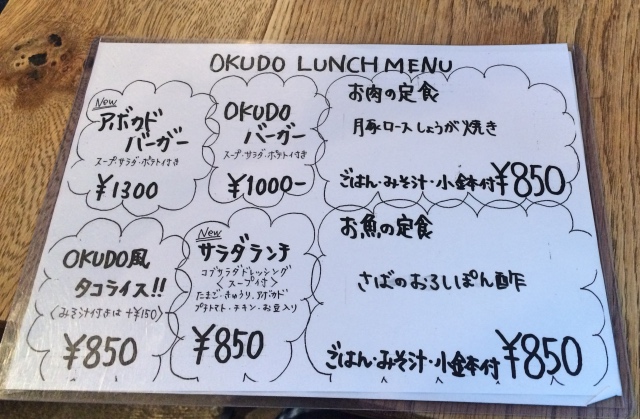 OKUDO LUNCH MENU
New
アボカド
バーガー
スープ・サラダ・ポテト付き
¥1300
OKUDO
バーガー
スープ・サラダ・ポテト付き
¥1000-
お肉の定食
豚ロースしょうが焼き
ごはん・みそ汁・小鉢付 ¥850
OKUDO風
タコライス!!
〈みそ汁付きは +¥150〉
¥850
New
サラダランチ
コブサラダドレッシング
〈スープ付〉
たまご・きゅうり、アボカド
プチトマト・チキン・お豆入り
¥850
お魚の定食
さばのおろしぽん酢
ごはん・みそ汁・小鉢本付 ¥850